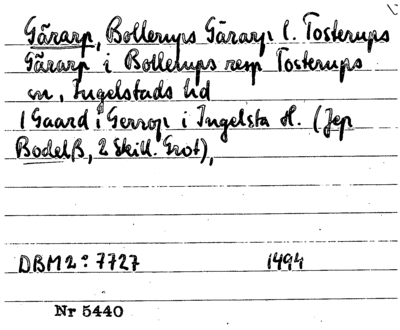 Gärarp, Bollerups Gärarp l. Tosterups
Gärarp i Bollerups resp Tosterups
sn, Ingelstads hd
1 Gaard i Gerrop i Ingelsta H. (Jep
Bodelß, 2 Skill. Grot),
DBM 2:o 7727 1494
Nr 5440